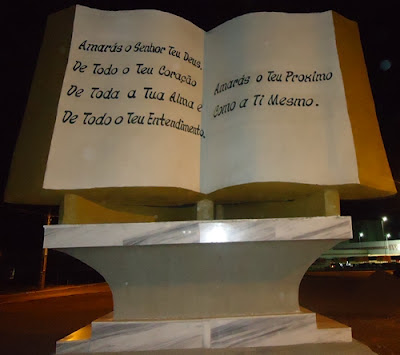 Amarás o Senhor Teu Deus.
De Todo o Teu Coração
De Toda a Tua Alma e
De Todo o Teu Entendimento.
Amarás o Teu Proximo
Como a Ti Mesmo.